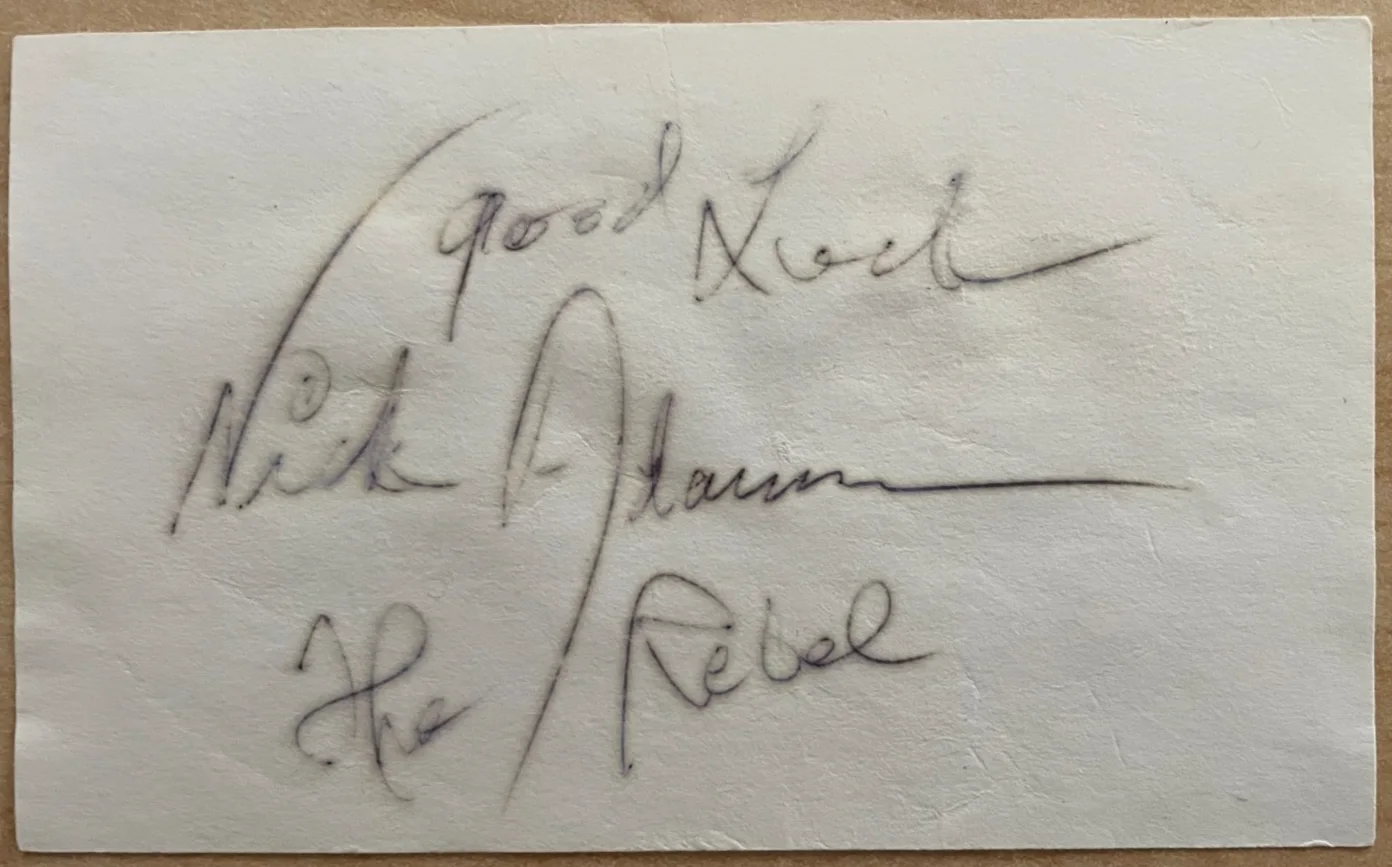 good Luck
Nick Adams
The Rebel